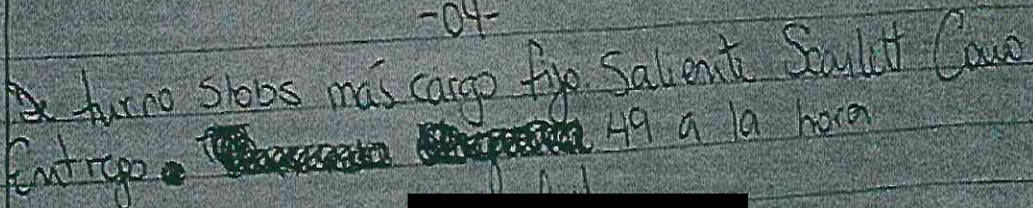 -04-
De turno slobs más cargo fijo. Saliente Scarlett
Entrego. 49 a la hora